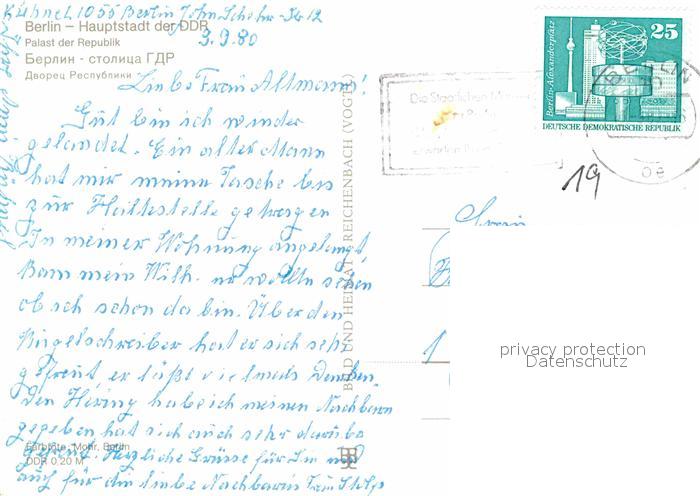 Kühnel 1055 Berlin John Scheer Str 12
Berlin – Hauptstadt der DDR
3.9.80
Palast der Republik
Берлин - столица ГДР
Дворец Республики
Liebe Frau Altmann!
Gut bin ich wieder
gelandet. Ein alter Mann
hat mir meine Tasche bis
zur Haltestelle getragen
In meiner Wohnung angelangt
kam mein Wilh. er wollte sehen
ob ich schon da bin. Über den
Kugelschreiber hat er sich sehr
gefreut, er läßt vielmals Danken
Den Hering habe ich meinen Nachbarn
gegeben hat sich auch sehr darüber
gefreut. Herzliche Grüsse für Sie und
auch für die liebe Nachbarin Frau
Farbfoto: Mohr, Berlin
DDR 0,20 M
BILD UND HEIMAT REICHENBACH (VOGTL)
Berlin-Alexanderplatz
25
DEUTSCHE DEMOKRATISCHE REPUBLIK
Die Staatlichen
19
Frau
privacy protection
Datenschutz